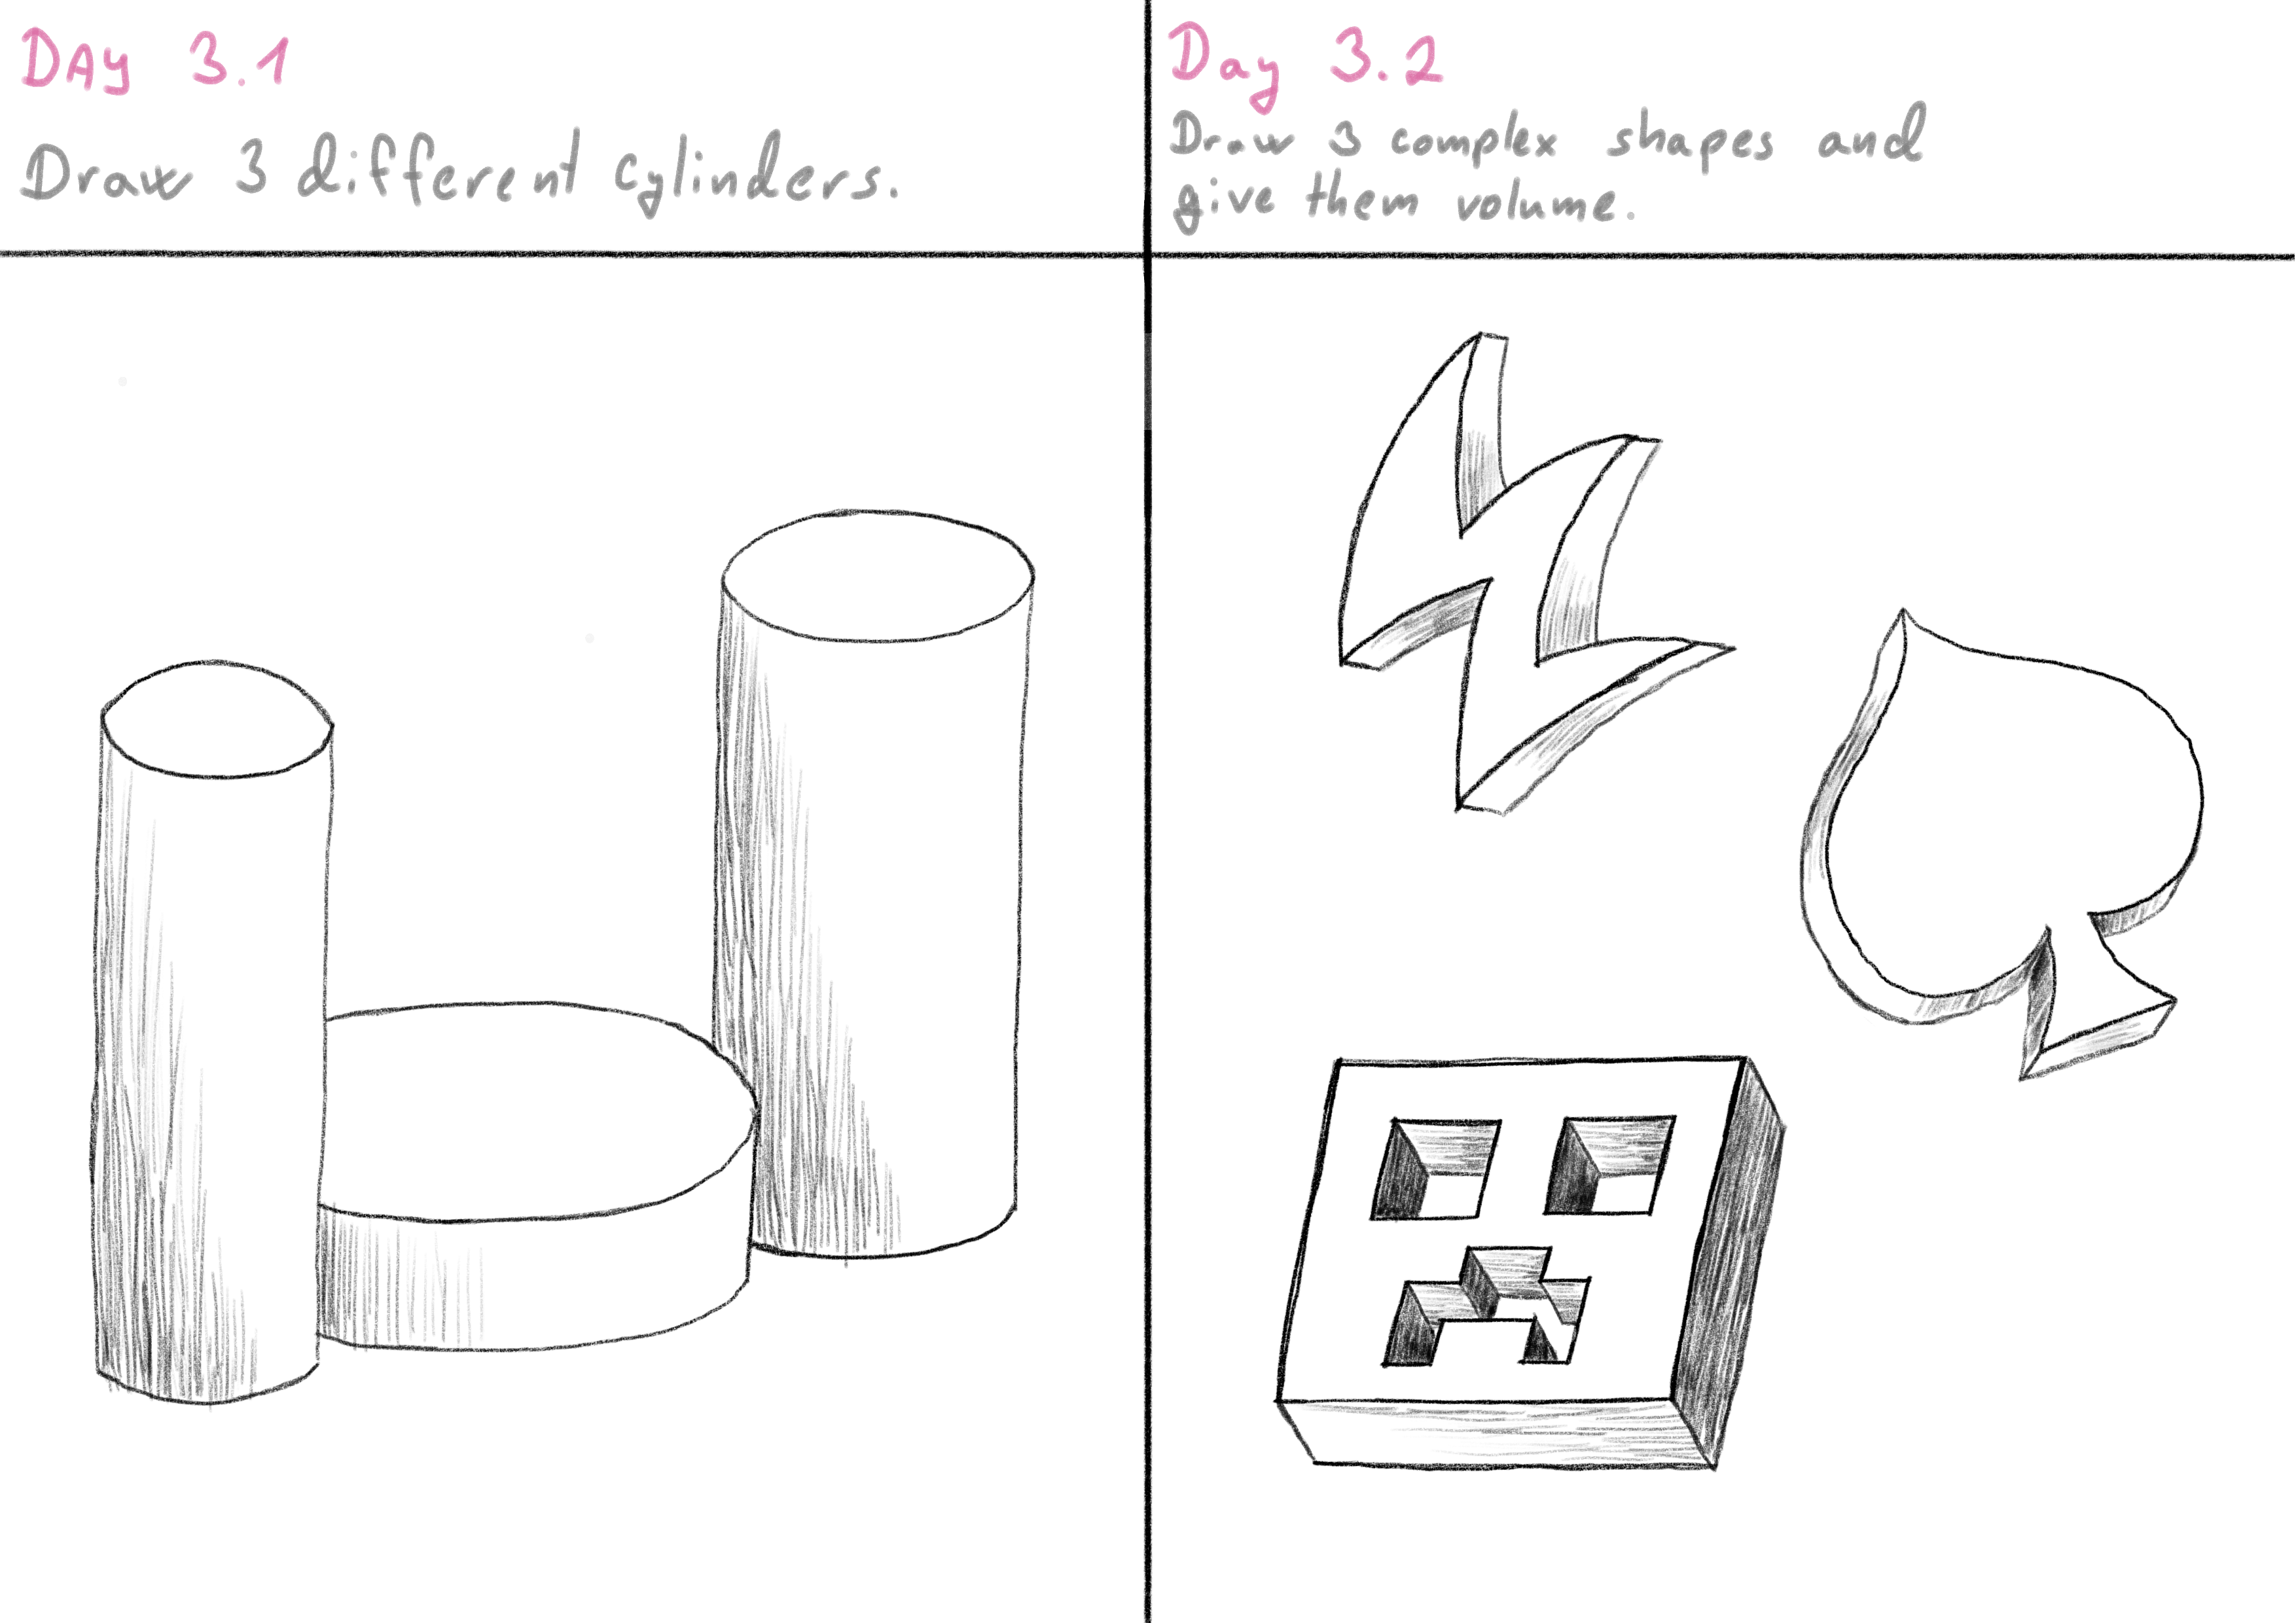 DAY 3.1
Draw 3 different cylinders.
Day 3.2
Draw 3 complex shapes and
give them volume.